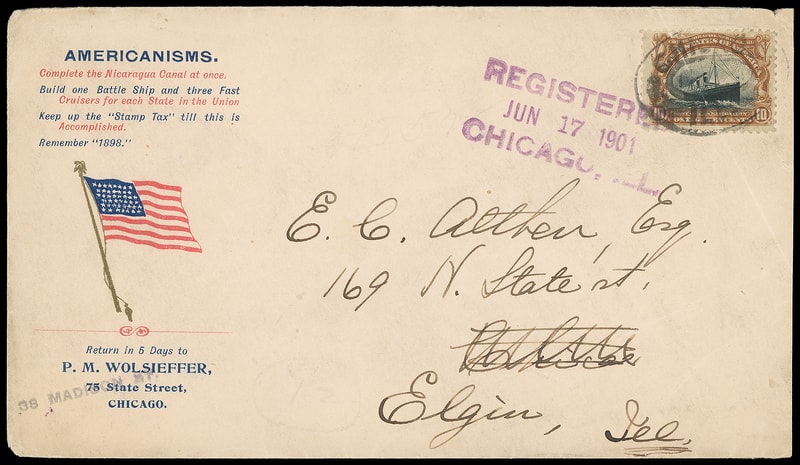 AMERICANISMS.
Complete the Nicaragua Canal at once.
Build one Battle Ship and three Fast
Cruisers for each State in the Union
Keep up the "Stamp Tax" till this is
Accomplished.
Remember "1898."
Return in 5 Days to
P. M. WOLSIEFFER,
75 State Street,
CHICAGO.
38 MADISON ST.
REGISTERED
JUN 17 1901
CHICAGO, ILL.
10
E. C. Althen, Esq.
169 N. State st.
Elgin, Ill.